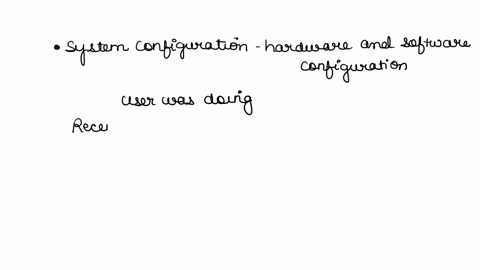 • System Configuration - hardware and software
configuration
user was doing
Rece